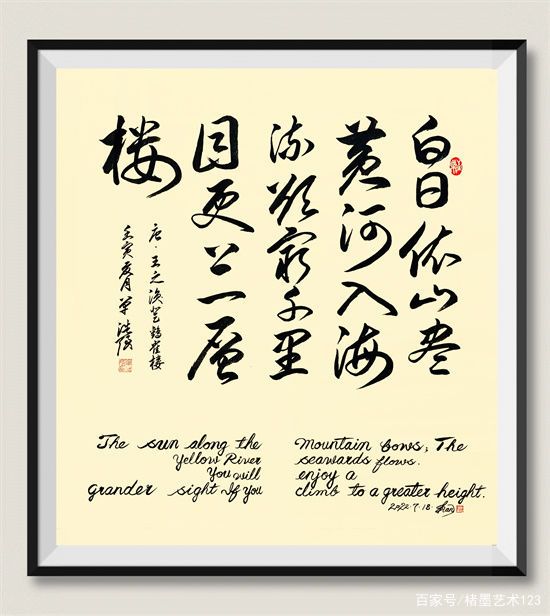 白日依山尽
黄河入海
流欲穷千里
目更上一层
楼
唐·王之涣登鹳雀楼
壬寅夏月
The sun along the Mountain bows; The
Yellow River seawards flows.
You will enjoy a
grander sight If you climb to a greater height.
2022.7.18.
百家号/楮墨艺术123